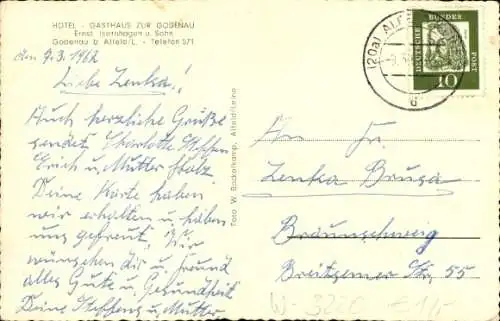 HOTEL - GASTHAUS ZUR GODENAU
Ernst Isernhagen u. Sohn
Godenau b. Alfeld/L. - Telefon 571
den 9.3.1962
Liebe Lenka!
Auch herzliche Grüße
sendet Charlotte Steffen
Erich u. Mutter
Deine Karte haben
wir erhalten u. haben
uns gefreut. Wir
wünschen dir u. Freund
alles Gute u. Gesundheit
Deine Steffens u. Mutter
Foto W. Backofkamp, Alfeld/Leine
(20a) ALF
DEUTSCHE BUNDES POST
10
An Fr.
Lenka Brusa
Braunschweig
Breitsemer Str. 55
W-3220